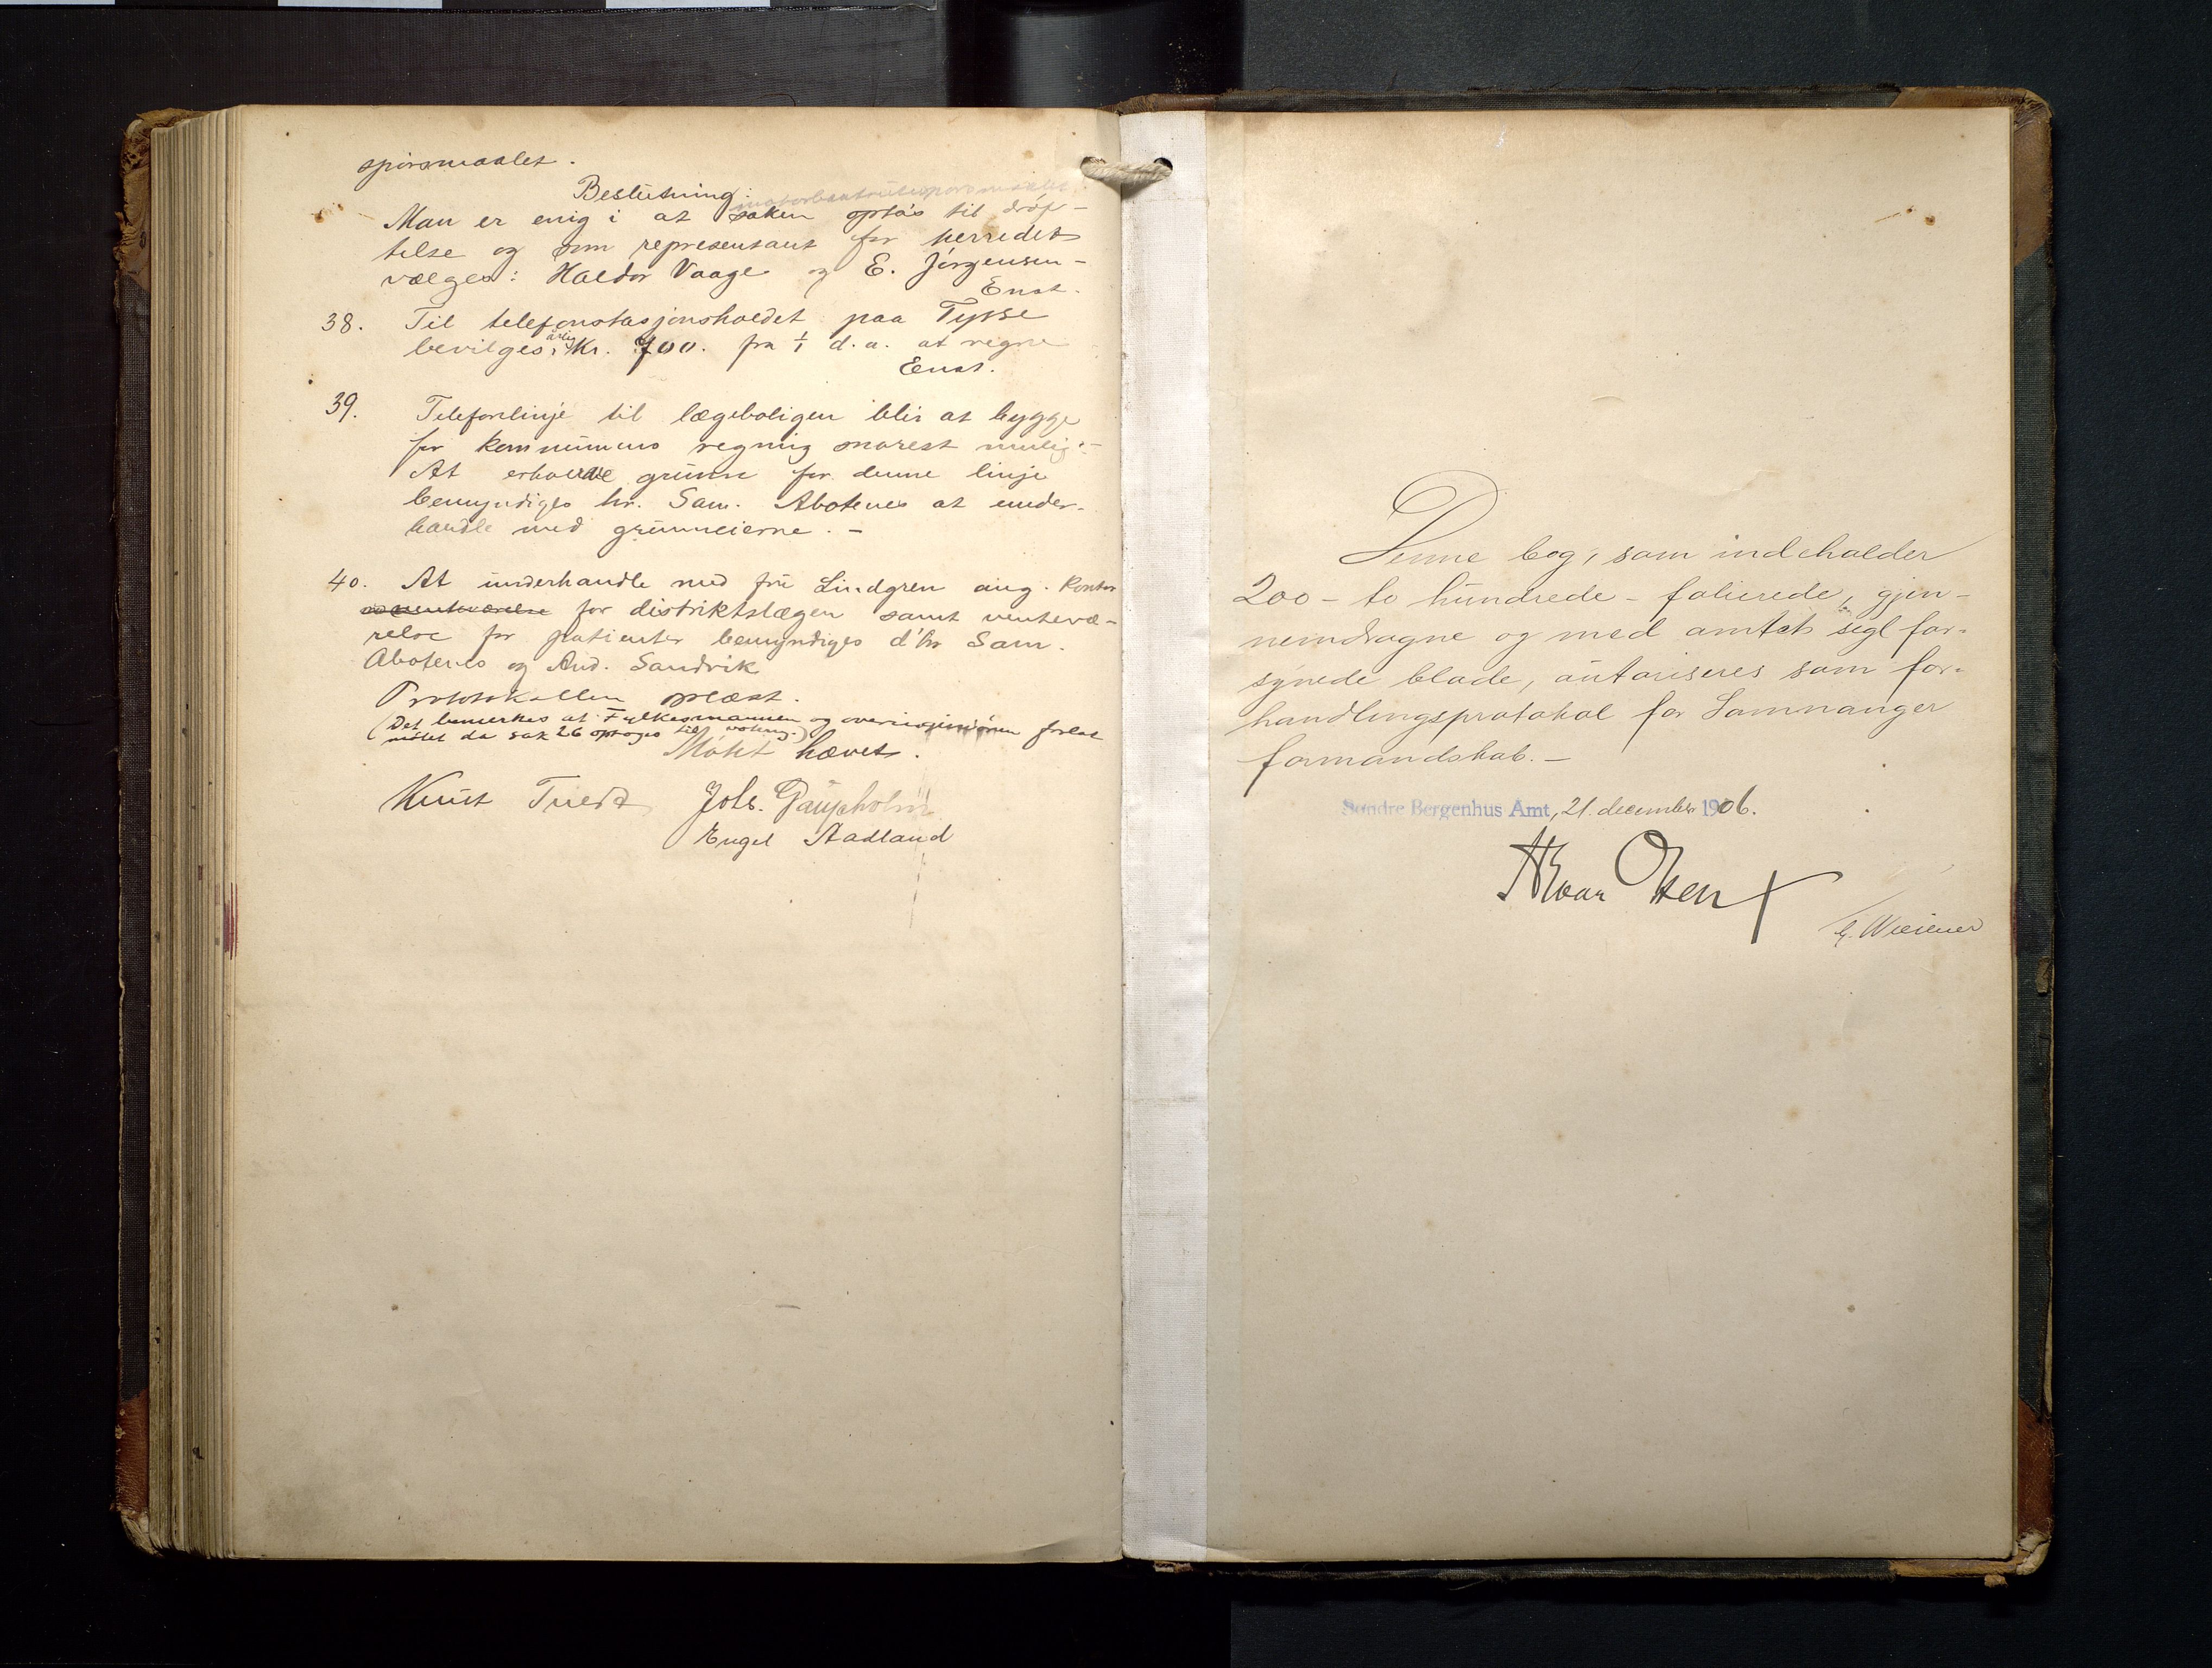 spörsmaalet.
Beslutning:
motorbaatrutespörsmaalet
Man er enig i at saken optas til dröf-
telse og som representant for herredet
vælges: Haldor Vaage og E. Jörgensen-
Enst.
38. Til telefonstasjonsholdet paa Tysse
bevilges årlig Kr. 700. fra 1/1 d.a. at regne
Enst.
39. Telefonlinje til lægeboligen blir at bygge
for kommunens regning snarest mulig.-
At erholde grunn for denne linje
bemyndiges hr. Sam. Abotenes at under-
handle med grunneierne. -
40. At underhandle med fru Lindgren ang. Kontor
for distriktslægen samt ventevæ-
relse for patienter bemyndiges d'hr Sam.
Abotenes og And. Sandvik
Protokollen oplæst.
(Det bemerkes at Fylkesmannen og overingeniören forlot
mötet da sak 26 optoges til votring.)
Mötet hævet.
Knut Tveit Johs. Gaupholm
Engel Aadland
Denne bog, som indeholder
200 - to hundrede - folierede, gjen-
nemdragne og med amtets segl for-
synede blade, autoriseres som for-
handlingsprotokol for Samnanger
formandskab. -
Søndre Bergenhus Amt, 21. december 1906.
Hroar Olsen